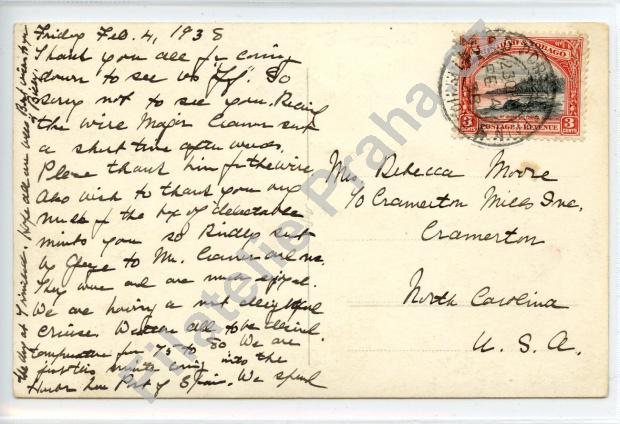 Friday Feb. 4, 1938
Thank you all for coming
down to see us "off". So
sorry not to see you. Recd
the wire Major Cramer sent
a short time afterwards.
Please thank him for the wire
Also wish to thank you very
much for the box of delectable
mints you so kindly sent
by George to Mr. Cramer and me.
They were and are much enjoyed.
We are having a most delightful
cruise. Weather all to be desired.
temperature for 75 to 80 We are
just this minute coming into the
Harbor here Port of Spain. We spend
the day at Trinidad. Hope all are well. Best wishes from
TRINIDAD & TOBAGO
3 CENTS
POSTAGE & REVENUE
3 CENTS
Mrs. Rebecca Moore
c/o Cramerton Mills Inc.
Cramerton
North Carolina
U. S. A.
Filatelie Praha.cz